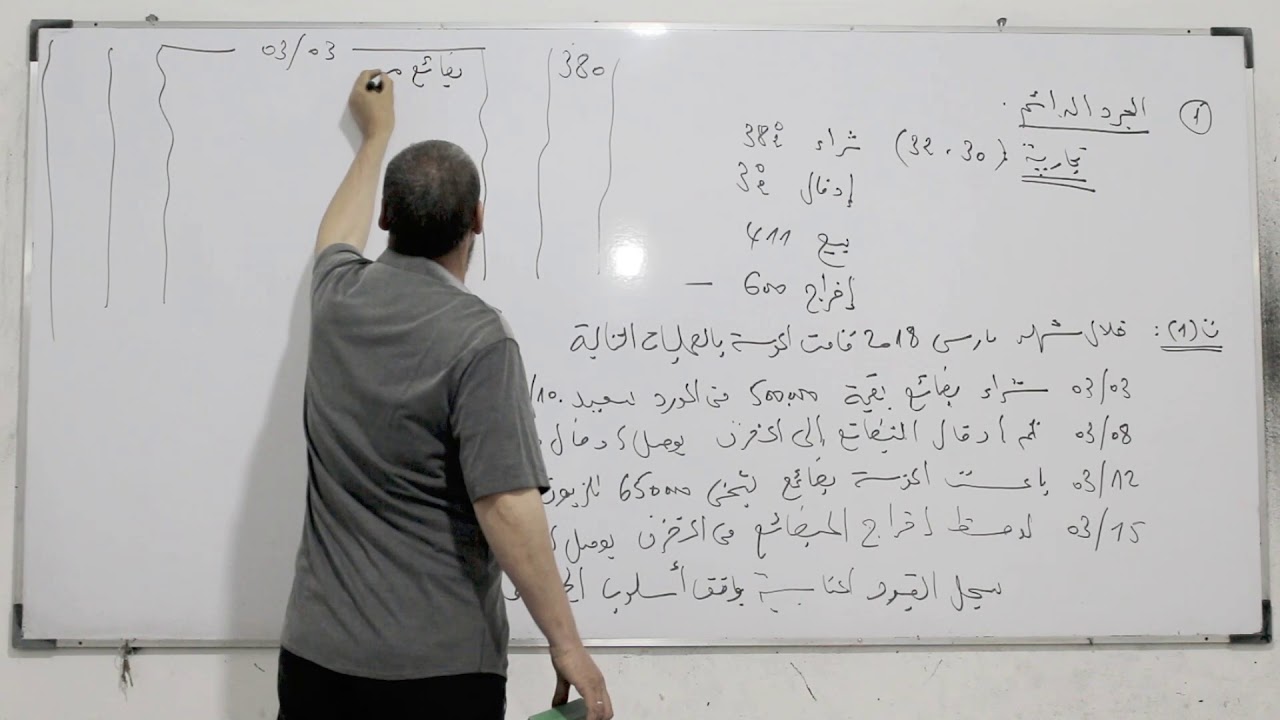 ① الجرد الدائم.
تجارية (30، 32)
شراء 38
إدخال 3
بيع 411
إخراج 600 –
ت(1): خلال شهر مارس 2018 قامت المؤسسة بالعمليات التالية
03/03 شراء بضائع بقيمة 500000 من المورد سعيد. 10/
03/08 تم إدخال البضائع إلى المخزن بوصل إدخال
03/12 باعت المؤسسة بضائع بثمن 650000 للزبون
03/15 إخراج البضائع من المخزن بوصل
سجل القيود المحاسبية يوافق أسلوب
03/03
380
بضائع